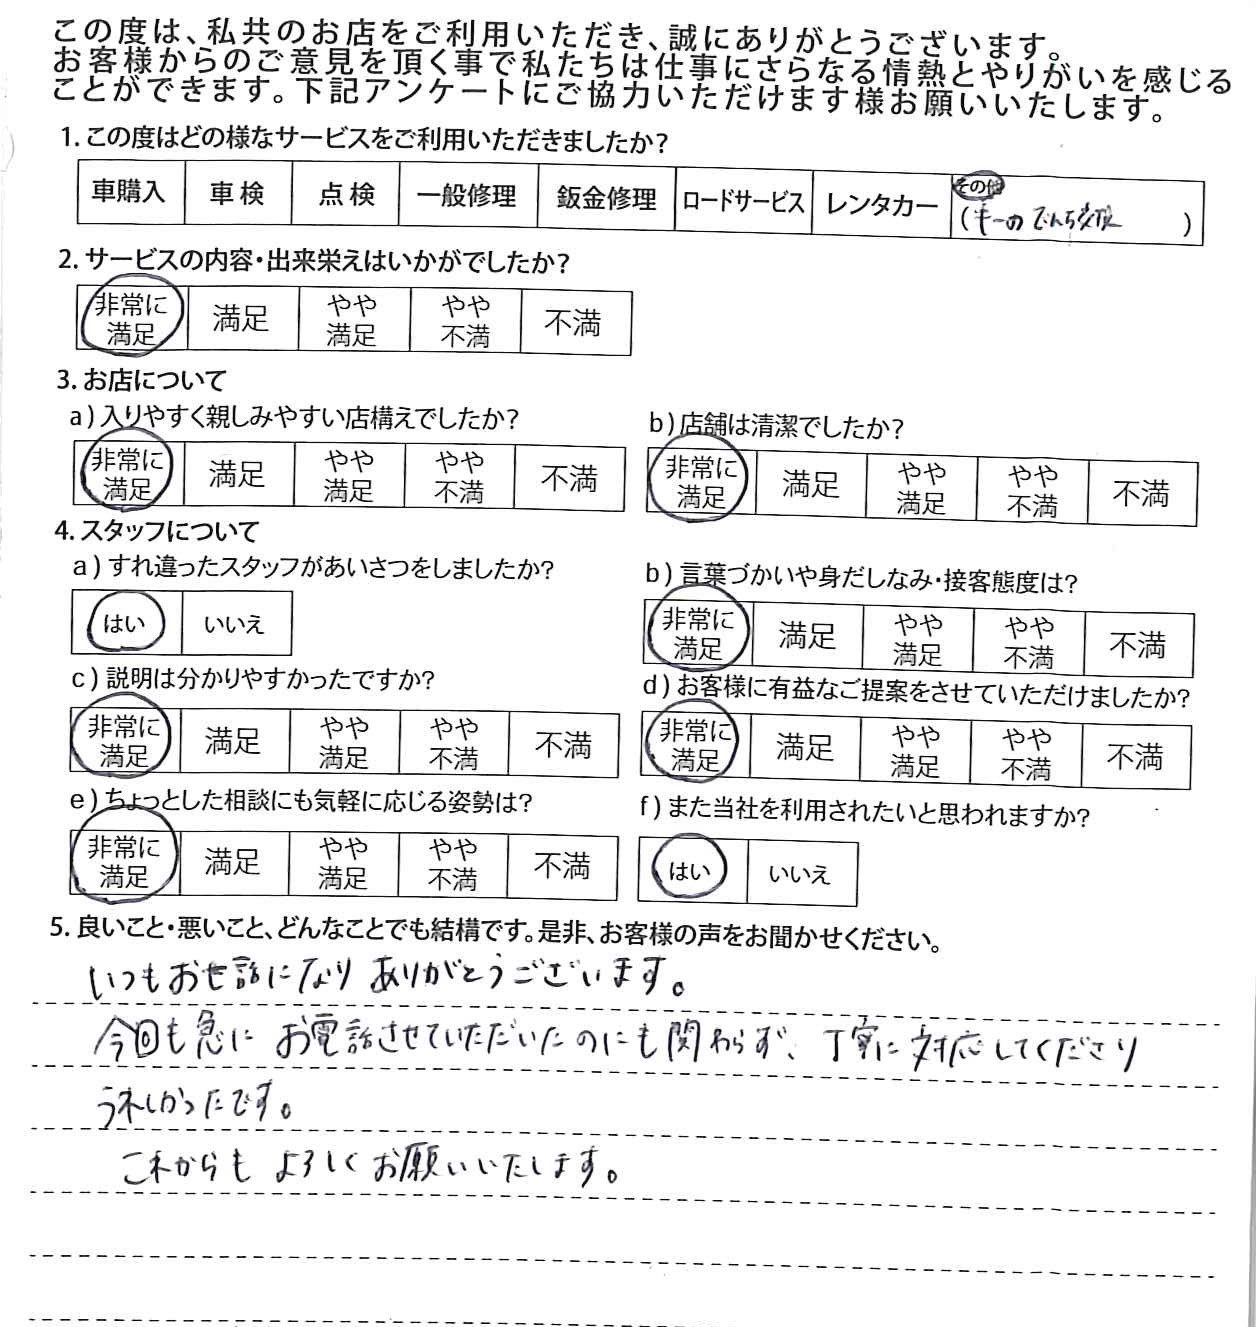 この度は、私共のお店をご利用いただき、誠にありがとうございます。
お客様からのご意見を頂く事で私たちは仕事にさらなる情熱とやりがいを感じる
ことができます。下記アンケートにご協力いただけます様お願いいたします。
1. この度はどの様なサービスをご利用いただきましたか?
車購入 車検 点検 一般修理 鈑金修理 ロードサービス レンタカー その他
(キーのでんち交換 )
2. サービスの内容・出来栄えはいかがでしたか?
非常に満足 満足 やや満足 やや不満 不満
3. お店について
a) 入りやすく親しみやすい店構えでしたか?
非常に満足 満足 やや満足 やや不満 不満
b) 店舗は清潔でしたか?
非常に満足 満足 やや満足 やや不満 不満
4. スタッフについて
a) すれ違ったスタッフがあいさつをしましたか?
はい いいえ
b) 言葉づかいや身だしなみ・接客態度は?
非常に満足 満足 やや満足 やや不満 不満
c) 説明は分かりやすかったですか?
非常に満足 満足 やや満足 やや不満 不満
d) お客様に有益なご提案をさせていただけましたか?
非常に満足 満足 やや満足 やや不満 不満
e) ちょっとした相談にも気軽に応じる姿勢は?
非常に満足 満足 やや満足 やや不満 不満
f) また当社を利用されたいと思われますか?
はい いいえ
5. 良いこと・悪いこと、どんなことでも結構です。是非、お客様の声をお聞かせください。
いつもお世話になり ありがとうございます。
今回も急に お電話させていただいたのにも関わらず、丁寧に対応してくださり
うれしかったです。
これからも よろしくお願いいたします。